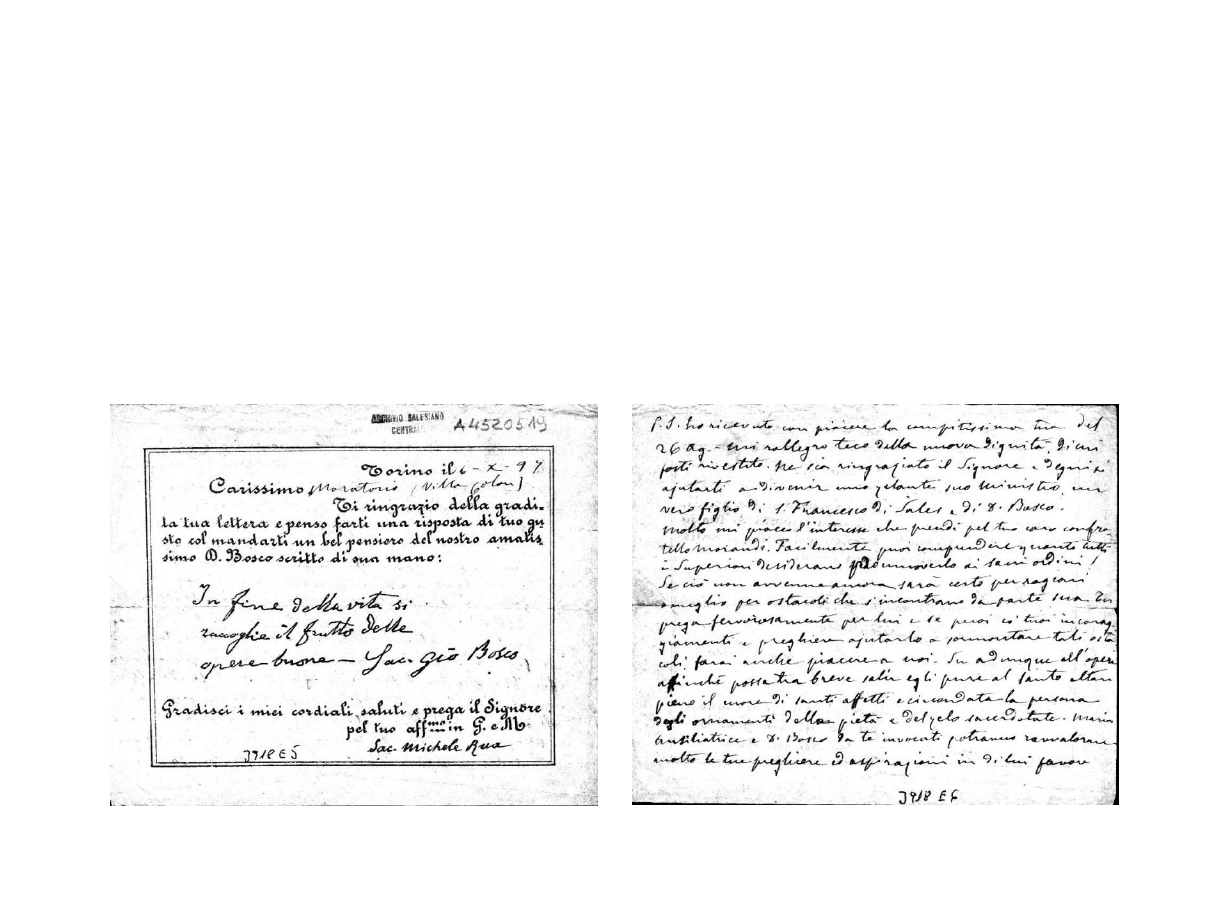 ARCHIVIO SALESIANO
CENTRALE
A4520519
Torino il 6-X-97
Carissimo Moratorio (Villa Colon)
Ti ringrazio della gradi-
ta tua lettera e penso farti una risposta di tuo gu
sto col mandarti un bel pensiero del nostro amatis
simo D. Bosco scritto di sua mano:
In fine della vita si
raccoglie il frutto delle
opere buone – Sac. Gio Bosco
Gradisci i miei cordiali saluti e prega il Signore
pel tuo aff.mo in G. e M.
Sac. Michele Rua
3918 E5
P.S. ho ricevuto con piacere la compitissima tua del
26 Ag. - mi rallegro teco della nuova dignità di cui
fosti rivestito. Ne sia ringraziato il Signore e degnisi
ajutarti a divenir uno zelante suo Ministro, un
vero figlio di S. Francesco di Sales e di D. Bosco.
Molto mi piacque l'interesse che prendi pel tuo caro confra
tello Morandi. Facilmente puoi comprendere quanto tutti
i Superiori desiderano promuoverlo ai sacri ordini!
Se ciò non avvenne ancora sarà certo per ragioni
o meglio per ostacoli che s'incontrano da parte sua. Tu
prega fervorosamente per lui e se puoi co' tuoi incorag
giamenti e preghiere ajutarlo a sormontare tali osta
coli, farai anche piacere a noi. Su adunque all'opera
affinchè possa tra breve salir egli pure al santo altare
pieno il cuore di santi affetti e circondata la persona
degli ornamenti della pietà e del zelo sacerdotale. Maria
Ausiliatrice e D. Bosco da te invocati potranno ravvalorare
molto le tue preghiere ed aspirazioni in di lui favore
3918 E6